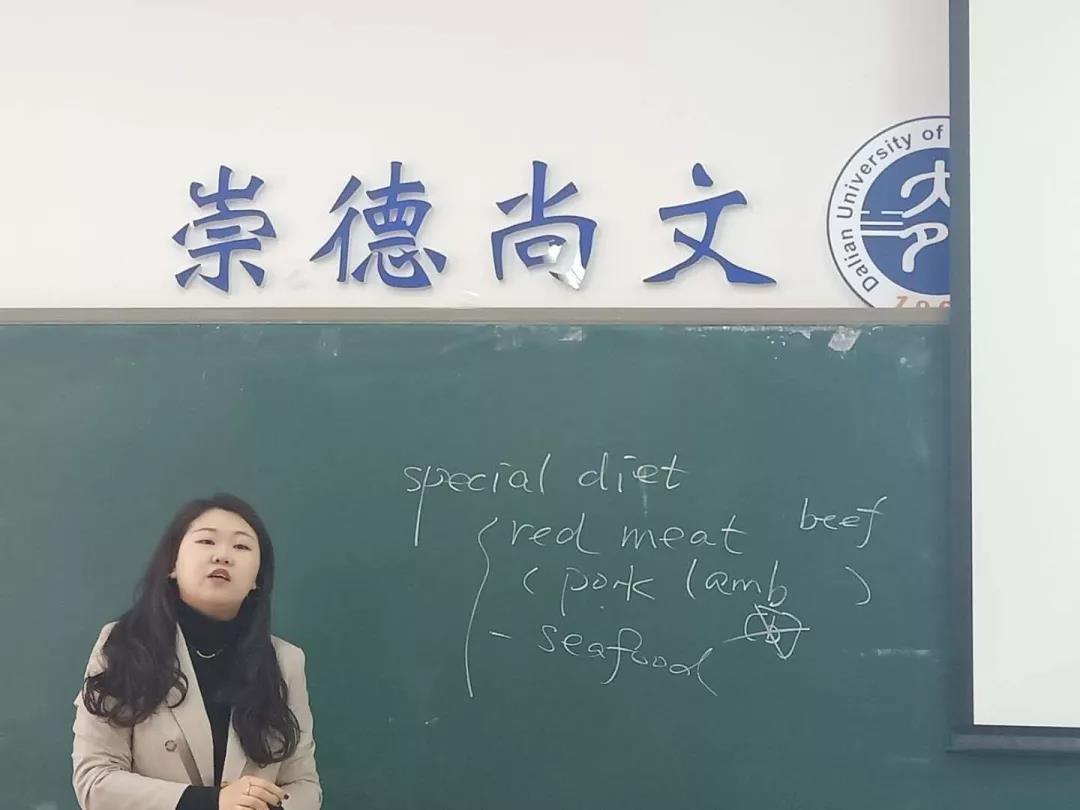 崇德尚文
Dalian University of
special diet
red meat beef
(pork lamb )
- seafood